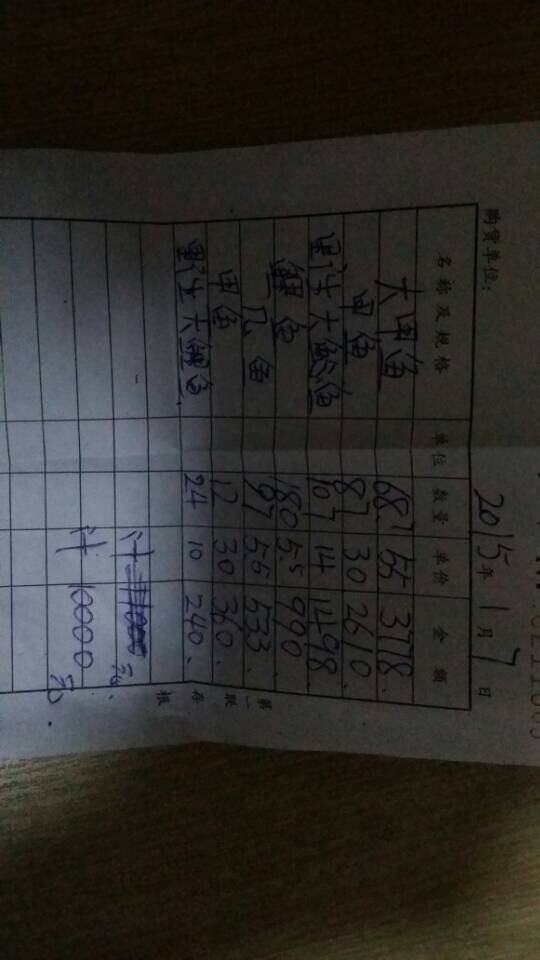 2015年1月7日
购货单位：
名称及规格 单位 数量 单价 金额
大甲鱼 68.7 55 3778.
甲鱼 87 30 2610.
野生大鲶鱼 107 14 1498.
鲤鱼 180 5.5 990
鱼 97 5.5 533.
甲鱼 12 30 360.
野生大鲤鱼 24 10 240.
计 元
计 10000 元
第一联存根